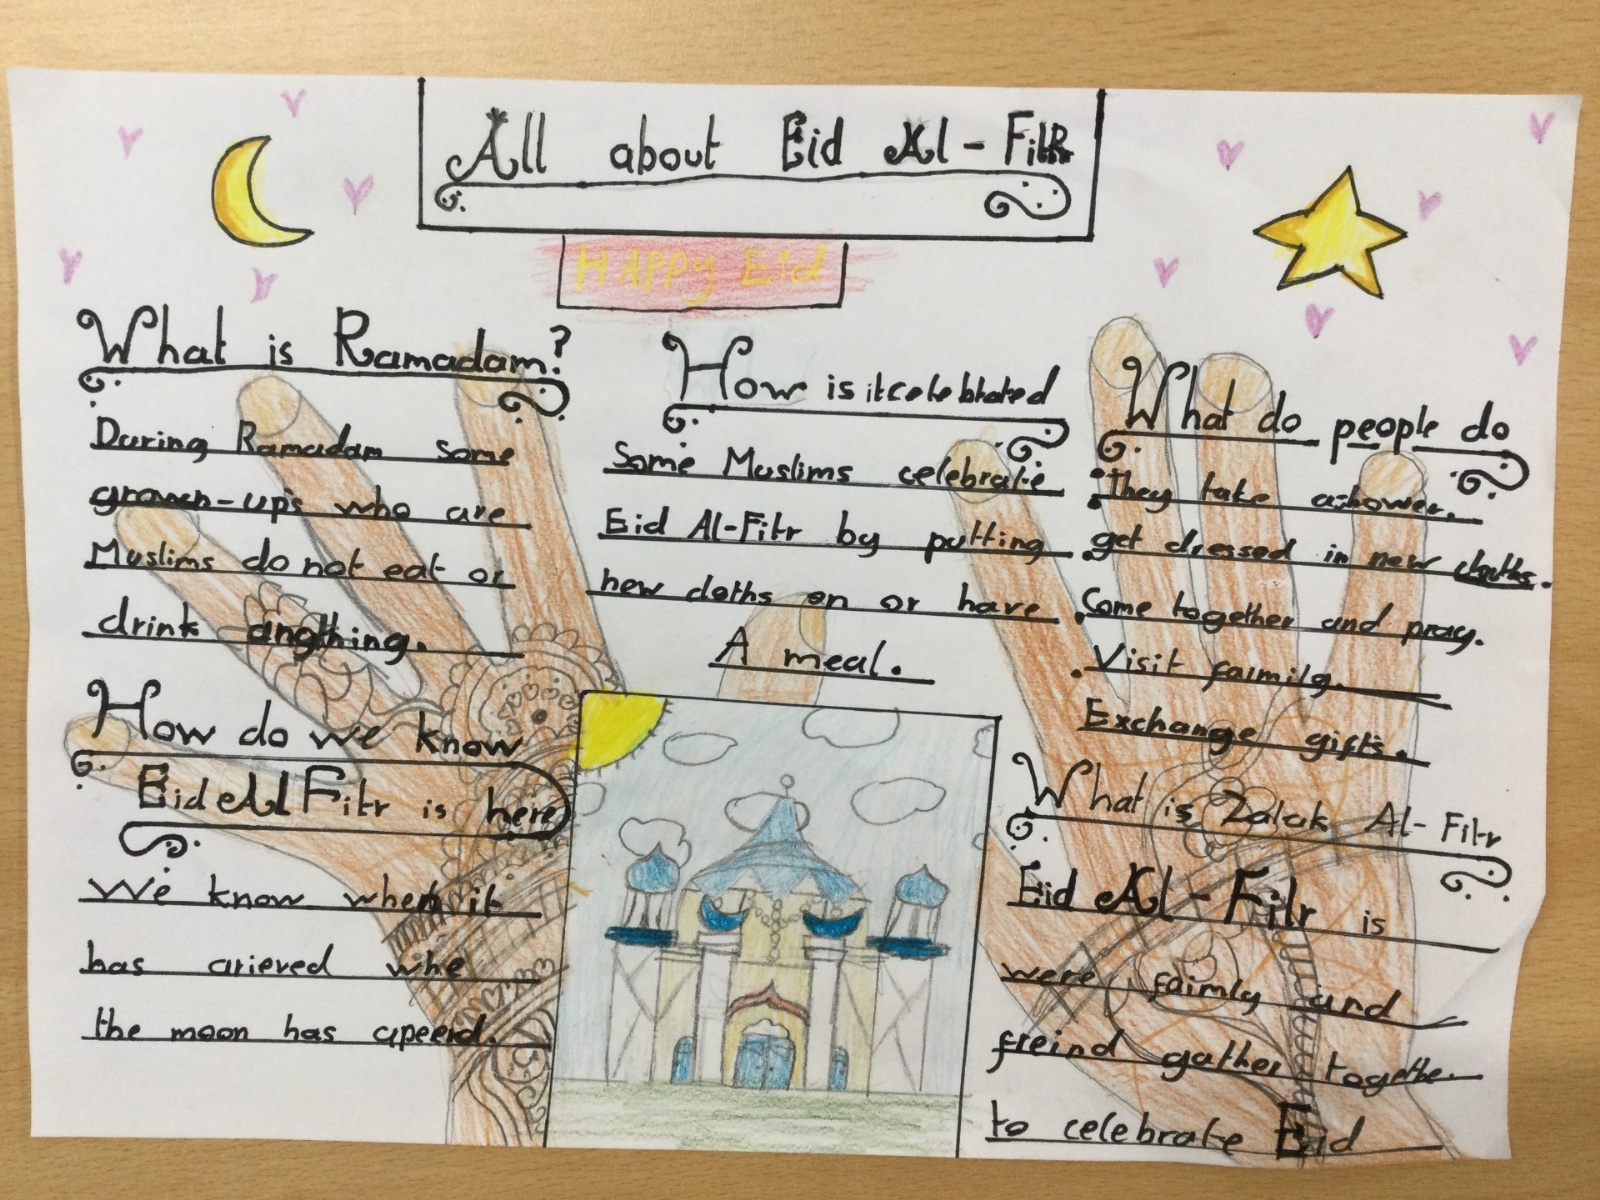 All about Eid Al-Fitr
HAPPy Eid
What is Ramadam?
During Ramadam some
grown-ups who are
Muslims do not eat or
drink angthing.
How do we know
Eid Al Fitr is here
We know when it
has arieved whe
the moon has apeerd.
How is it celebrated
Some Muslims celebrate
Eid Al-Fitr by putting
new cloths on or have
A meal.
What do people do
• They take a shower.
• get dressed in new cloths.
• Come together and pray.
• Visit faimily.
Exchange gifts.
What is Zalak Al-Fitr
Eid Al-Fitr is
were faimly and
freind gather togethe
to celebrate Eid